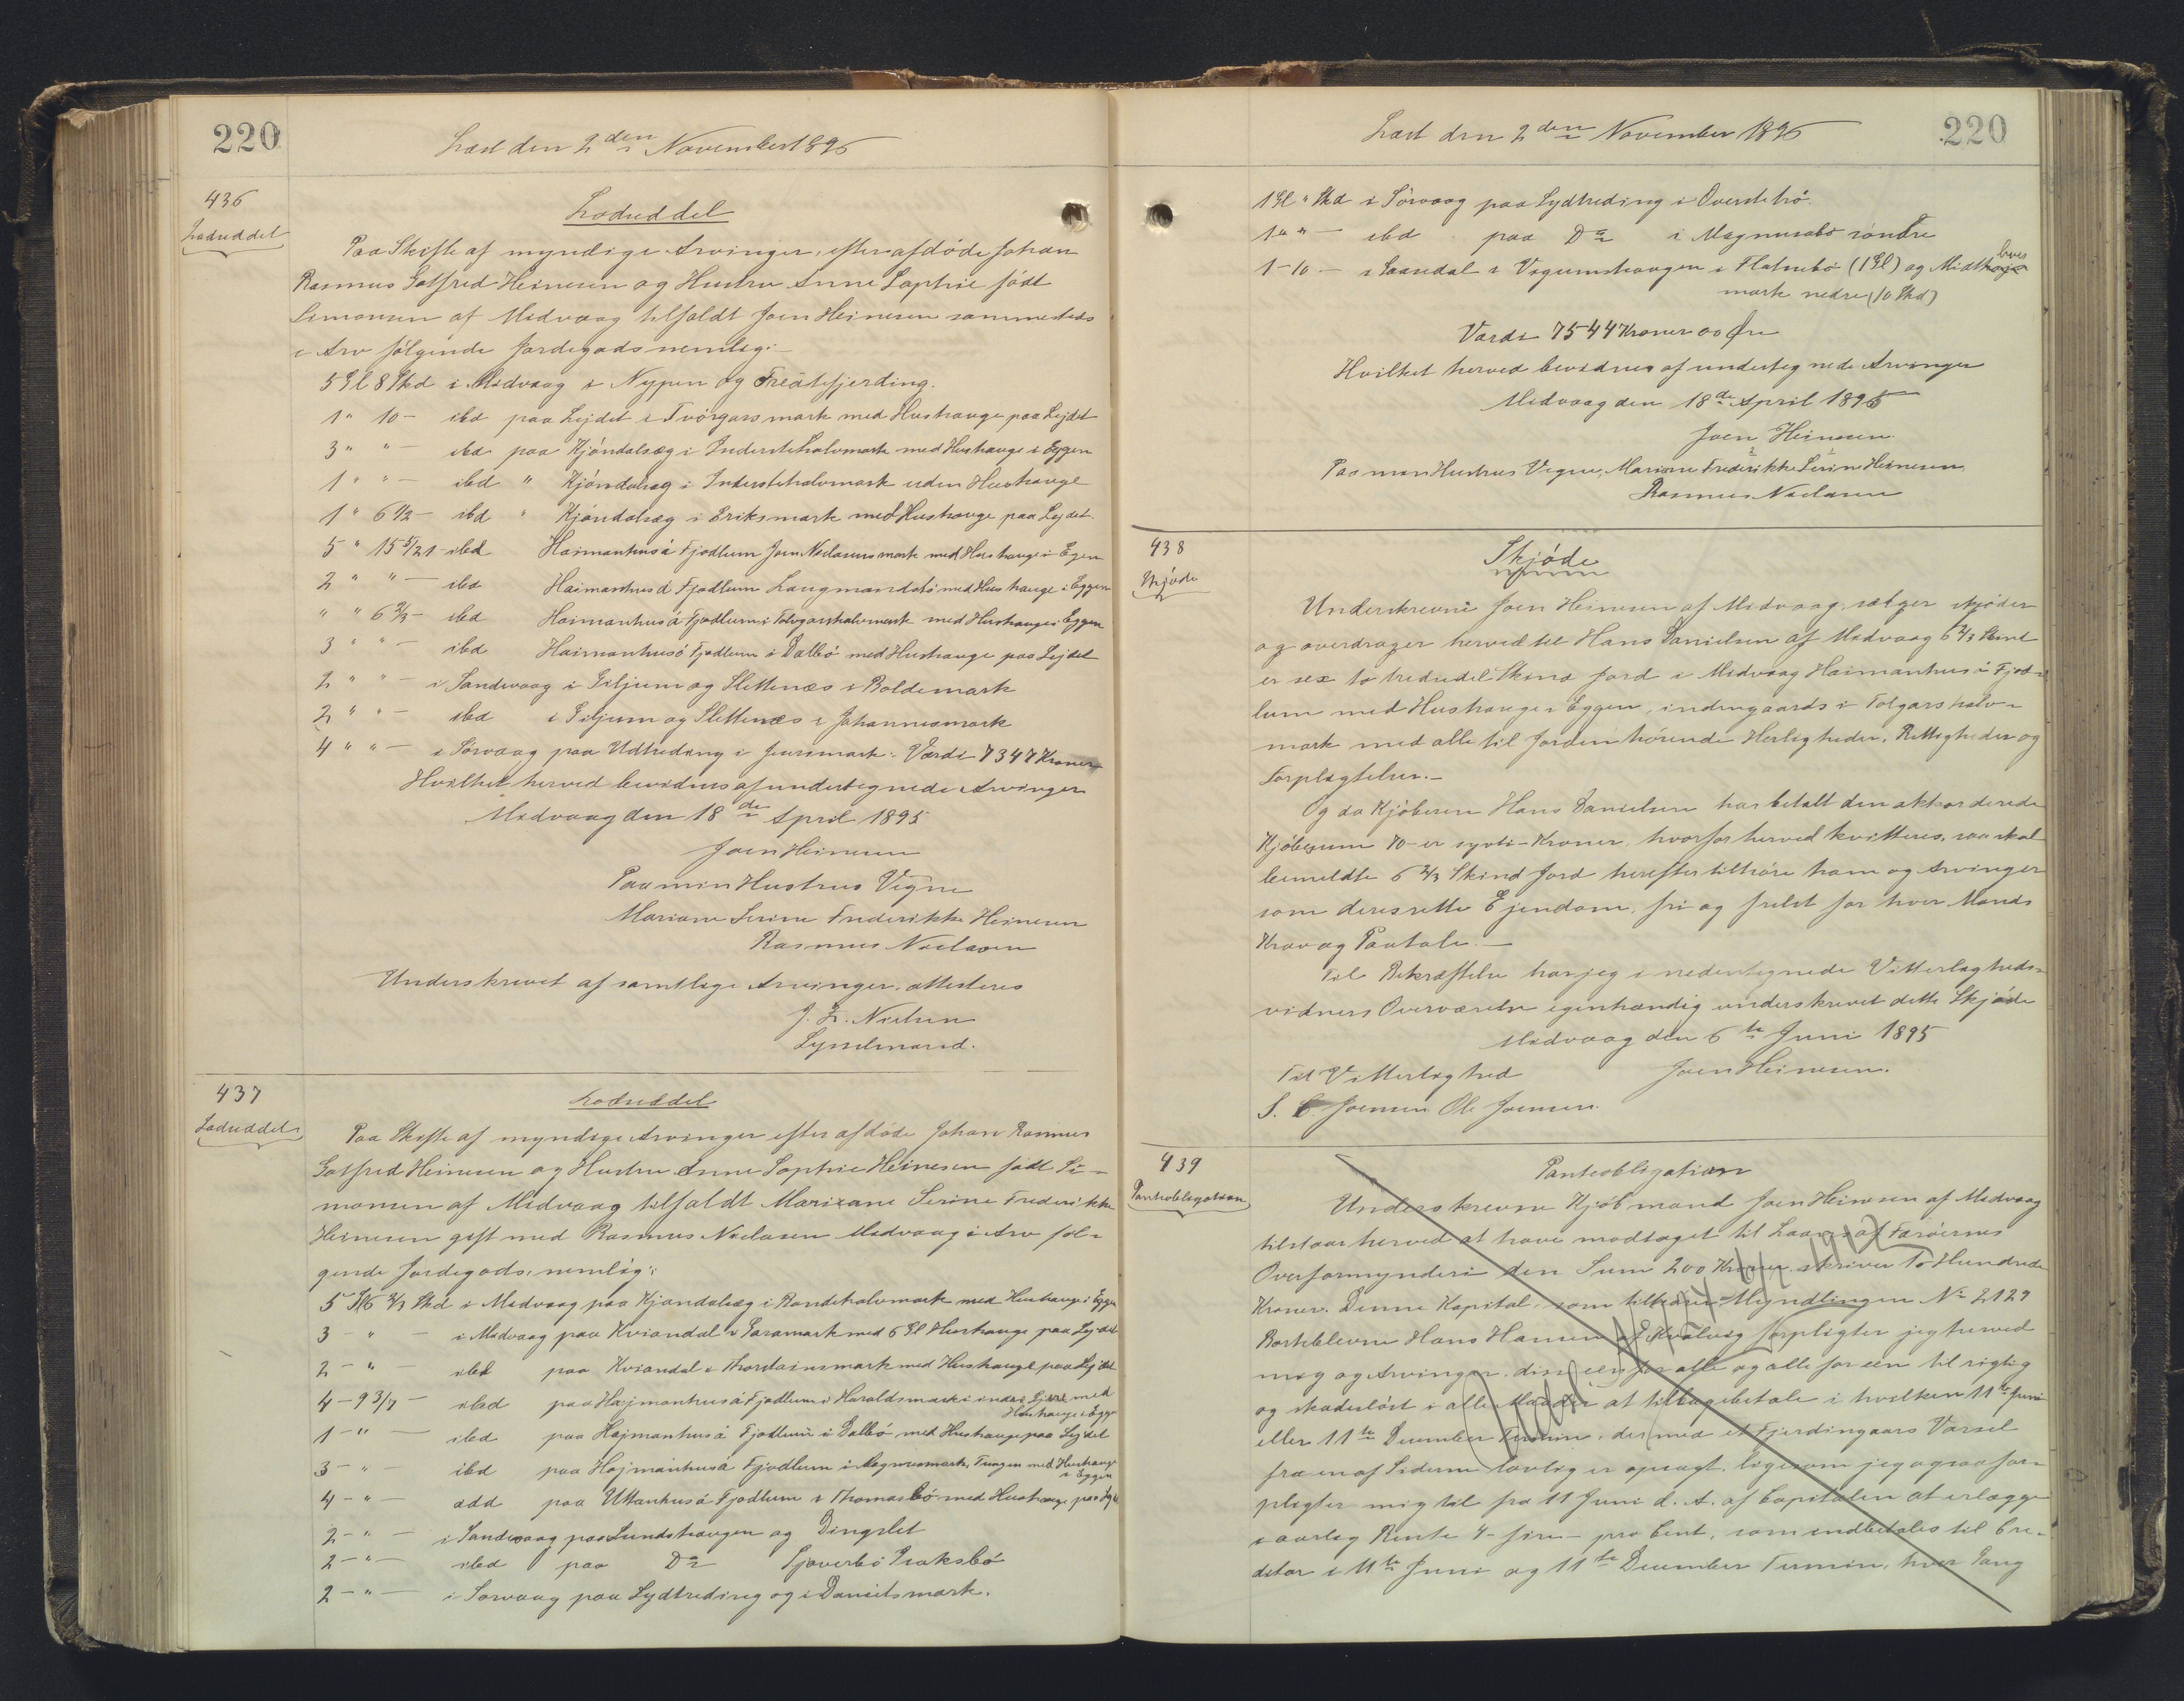 220
Læst den 2den November 1895
436
Lodseddel
Lodseddel
Paa Skifte af myndige Arvinger efter afdøde Johan
Rasmus Gotfred Heinesen og Hustru Anne Sophie født
Simonsen af Midvaag tilfaldt Joen Heinesen sammesteds
i Arv følgende Jordegods nemlig:
5 Gl 8 Skd i Midvaag i Nypen og Treatefjerding.
1 " 10 - ibd paa Lejdet i Tvørgarsmark med Hushauge paa Lejdet
3 " " - ibd paa Kjøndalsæg i Inderstehalvmark med Hushauge i Eggen
1 " " - ibd " Kjøndalsæg i Inderstehalvmark uden Hushauge
1 " 6 1/2 - ibd " Kjøndalsæg i Eriksmark med Hushauge paa Lejdet.
5 " 15 5/21 - ibd Haimanhusá Fjødlum Joen Nielsens mark med Hushauge i Egen
2 " " - ibd Haimanhusá Fjødlum Laugmandsbø med Hushauge i Eggen
" " 6 2/3 - ibd Haimanhusá Fjødlum i Tolvgarshalvmark med Hushauge i Eggen
3 " " - ibd Haimanhusá Fjødlum i Dalbø med Hushauge paa Lejdet
2 " " - i Sandevaag i Giljum og Slettenæs i Boldemark
2 " " - ibd i Giljum og Slettenæs i Johannesmark
4 " " - i Sørvaag paa Udtreding i Jensmark. Værdi 7347 Kroner
Hvilket herved bevidnes af undertegnede Arvinger
Midvaag den 18de April 1895
Joen Heinesen
Paa min Hustrus Vegne
Mariane Serine Frederikke Heinesen
Rasmus Nielsen
Underskrevet af samtlige Arvinger, attesteres
J. F. Nielsen
Sysselmand.
437
Lodseddel
Lodseddel
Paa Skifte af myndige Arvinger efter afdøde Johan Rasmus
Gotfred Heinesen og Hustru Anne Sophie Heinesen født Si-
monsen af Midvaag tilfaldt Mariane Serine Frederikke
Heinesen gift med Rasmus Nielsen Midvaag i Arv føl-
gende Jordegods, nemlig:
5 Gl 6 2/3 Skd i Midvaag paa Kjøndalsæg i Randehalvmark med Hushauge i Eggen
3 - " - i Midvaag paa Kviandal i Garamark med 6 Gl Hushauge paa Lejdet
2 - " - ibd paa Kviandal i Thordainsmark med Hushauge paa Lejdet
4 - 9 3/7 - ibd paa Hajmanhusá Fjødlum i Haraldsmark i indre Gjerde med
Hushauge i Eggen
1 - " - ibd paa Hajmanhusá Fjødlum i Dalbø med Hushauge paa Lejdet
3 - " - ibd paa Hajmanhusá Fjødlum i Magnusmark, Tungen med Hushauge
i Eggen
4 - " - add paa Uttanhusá Fjødlum i Thomasbø med Hushauge paa Lejdet
2 - " - i Sandevaag paa Lundshaugen og Dingslet
2 - " - ibd paa Do
2 - " - i Sørvaag paa Sydtreding og i Danielsmark.
Læst den 2den November 1895
220
1 Gl " Skd i Sørvaag paa Sydtreding i Overstebø.
1 " " - ibd paa Do i Magnusabø søndre
1 - 10 - i Saaedal i Vegumshaugen i Flatnebø (1 Gl) og Midt
mark nedre (10 Skd)
Værdi 7544 Kroner 00 Øre
Hvilket herved bevidnes af undertegnede Arvinger
Midvaag den 18de April 1895
Joen Heinesen
Paa min Hustrus Vegne, Mariane Frederikke Serine Heinesen
Rasmus Nielsen
438
Skjøde
Skjøde
Underskrevne Joen Heinesen af Midvaag, sælger skjøder
og overdrager herved til Hans Danielsen af Midvaag 6 2/3 Skind
er sex to tredjedel Skind Jord i Midvaag Haimanhusá Fjød-
lum med Hushauge i Eggen, indengaards i Tolgarshalv-
mark med alle til Jorden hørende Herligheder, Rettigheder og
Forpligtelser. -
Og da Kjøberen Hans Danielsen har betalt den akkorderede
Kjøbesum 70 - er syvti - Kroner, hvorfor herved kvitteres, saa skal
bemeldte 6 2/3 Skind Jord herefter tilhøre ham og Arvinger
som deres rette Ejendom, fri og frelst for hver Mands
Krav og Paatale. -
Til Bekræftelse har jeg i nedentegnede Vitterligheds-
vidners Overværelse egenhændig underskrevet dette Skjøde
Midvaag den 6te Juni 1895
Til Vitterlighed Joen Heinesen.
S. C. Joensen Ole Joensen.
439
Panteobligation
Panteobligation
Underskrevne Kjøbmand Joen Heinesen af Midvaag
tilstaar herved at have modtaget til Laans af Færøernes
Overformynderi den Sum 200 Kroner skriver To Hundrede
Kroner. Denne Kapital, som tilhører Myndlingen No 2129
Bortblevne Hans Hansen af Kvalvig forpligter jeg herved
mig og Arvinger, din een for alle og alle for een til rigtig
og skadesløst i alle Maader at tilbagebetale i hvilken 11te Juni
eller 11te December Termin, der med et Fjerdingaars Varsel
fra en af Siderne lovlig er opsagt, ligesom jeg ogsaa for-
pligter mig til fra 11 Juni d. A. af Capitalen at erlægge
i aarlig Rente 4 - fire - pro Cent, som indbetales til Cre-
ditor i 11te Juni og 11te December Termin, hver Gang